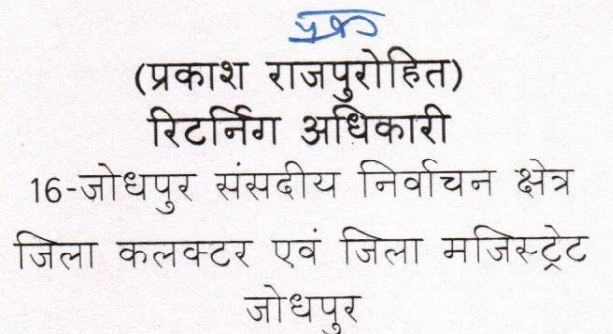 (प्रकाश राजपुरोहित)
रिटर्निग अधिकारी
16-जोधपुर संसदीय निर्वाचन क्षेत्र
जिला कलक्टर एवं जिला मजिस्ट्रेट
जोधपुर